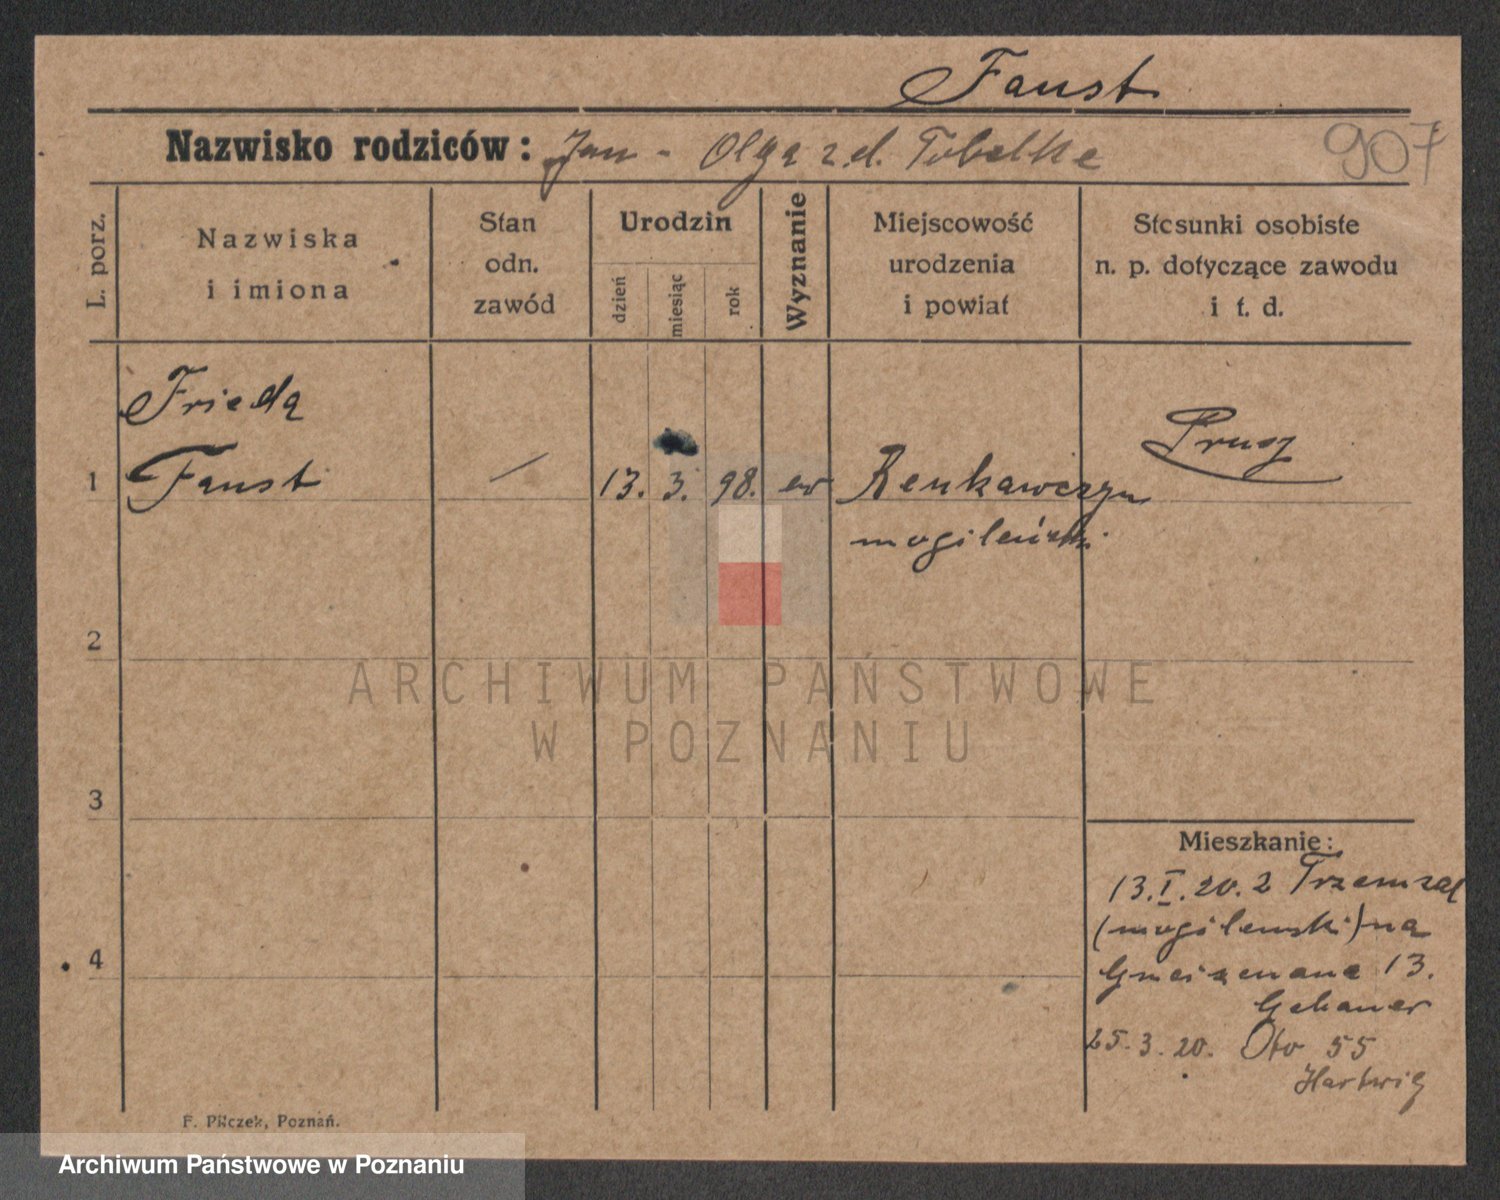 Faust
Nazwisko rodziców: Jan - Olga z d. Tobelke
907
L. porz.
Nazwiska
i imiona
Stan
odn.
zawód
Urodzin
dzień
miesiąc
rok
Wyznanie
Miejscowość
urodzenia
i powiat
Stosunki osobiste
n. p. dotyczące zawodu
i t. d.
Frieda
1 Faust — 13. 3. 98. ew Renkawczyn
mogileński
2
3
4
ARCHIWUM PAŃSTWOWE
W POZNANIU
Mieszkanie:
13.I.20. z Trzemszal
(mogilewski) na
Gneizenana 13.
Gebauer
25.3.20. Oto 55
Hartwig
F. Pilczek, Poznań.
Archiwum Państwowe w Poznaniu